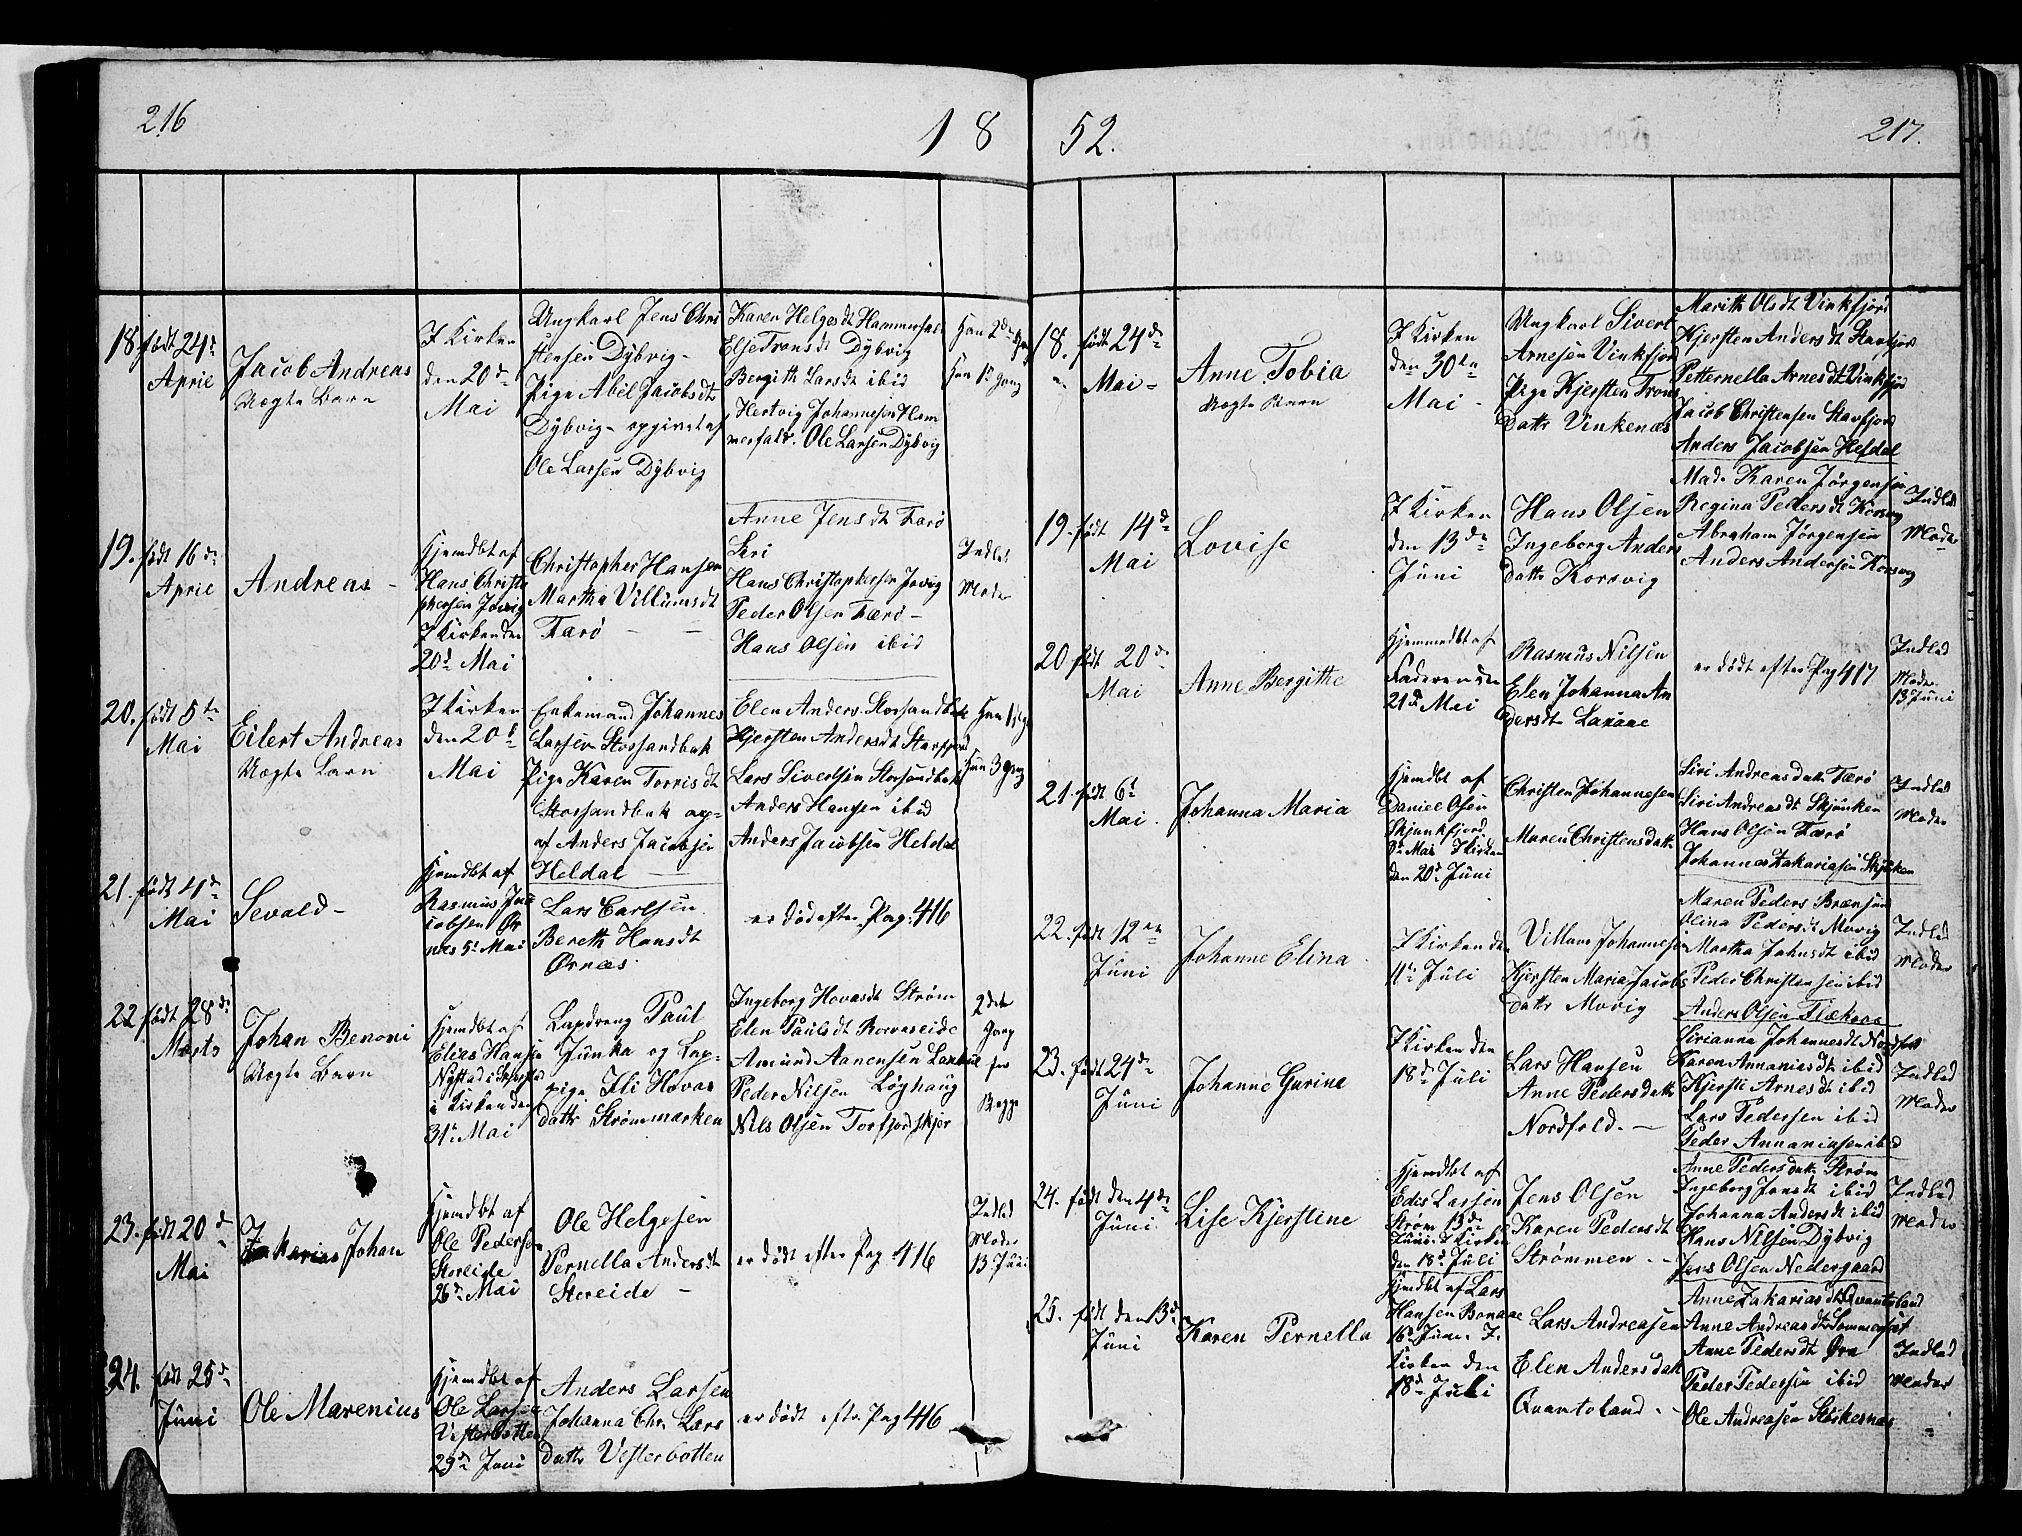 216
18
52.
217.
18 født 24de
April
Jacob Andreas
Uægte Barn
I Kirken
den 20de
Mai
Ungkarl Jens Chri
stensen Dybvig -
Pige Abel Jacobsdt
Dybvig - opgivet af
Ole Larsen Dybvig
Karen Helgesdt Hammerfald
Else Tronsdt Dybvig
Bergith Larsdt ibid
Hertvig Johannesen Ham
merfald. Ole Larsen Dybvig
Han 2de Gang
Hun 1te Gang
19. født 16de
April
Andreas -
Hjemdbt af
Hans Christo
phersen
I Kirken den
20de Mai
Christopher Hansen
Martha Villumsdt
Farö - -
Anne Jensdt Farö
Siri
Hans Christophersen
Peder Olsen Færö -
Hans Olsen ibid
Indled
Moder
20. født 5te
Mai
Eilert Andreas
Uægte Barn
I Kirken
den 20de
Mai
Enkemand Johannes
Larsen Storsandbak
Pige Karen Torrisdt
Storsandbak
af Anders Jacobsen
Heldal
Elen Anders. Storsandbak
Kjersten Andersdt Stavfjord
Lars Sivertsen Storsandbak
Anders Hansen ibid
Anders Jacobsen Heldal
Hun 3 Gang
21. født 4de
Mai
Sevald -
Hjemdbt af
Rasmus Ja
cobsen Ør
nes 5te Mai
Lars Carlsen
Bereth Hansdt
Ørnæs
er død efter Pag. 416
22 født 28de
Marts
Johan Benoni
Uægte Barn
Hjemdbt af
Elias Hansen
i Kirken den
31te Mai
Lapdreng Paul
Junka og Lap-
pige Hovas
datter Strømmarken
Ingeborg Hovasdt Strøm
Elen Paulsdt
Amund Aanensen
Peder Nilsen Løghaug
Nils Olsen Torfjordskjer
2det
Gang
for
Begge
23. født 20de
Mai
Zakarias Johan
Hjemdbt af
Ole Pedersen
Storeide
26de Mai
Ole Helgesen
Pernella Andersdt
Storeide -
er dødt efter Pag 416
Indled
Moder
13de Juni
24. født 25de
Juni
Ole Marenius
Hjemdbt af
Ole Larsen
Vesterbotten
29de Juni
Anders Larsen
Johanna Chr. Lars
datter Vesterbotten
er dødt eftr Pag 416
18. født 24de
Mai -
Anne Tobia
Uægte Barn
I Kirken
den 30te
Mai -
Ungkarl Sivert
Arnesen Vinkfjord
Pige Kjersten Trons
datter Vinkenæs
Marith Olsdt Vinkfjord
Kjersten Andersdt Stavfjord
Petternella Arnesdt Vinkfjord
Jacob Christensen Stavfjord
Anders Jacobsen Heldal
19. født 14de
Mai
Lovise
I Kirken
den 13de
Juni
Hans Olsen
Ingeborg Anders
datter Korsvig
Mad. Karen Jørgensen
Regina Pedersdt Korsvig
Abraham Jørgensen
Anders Andersen Korsvig
Indled
Moder
20 født 20de
Mai
Anne Bergithe
Hjemmedbt af
Faderen den
21de Mai
Rasmus Nilsen
Elen Johanna An
dersdt
er dødt efter Pag 417
Indled
Moder
13 Juni
21. født 6te
Mai.
Johanna Maria
Hjemdbt af
Daniel Olsen
Skjunkfjord
8de Mai I Kirken
den 20de Juni
Christen Johannesen
Maren Christensdatt
Siri Andreasdatt Færö
Siri Andreasdt Skjunken
Hans Olsen Færö
Johannes Zakariasen Skjunken
Indled
Moder
22. født 12te
Juni
Johanne Elina
I Kirken den
4de Juli
Villum Johannesen
Kjersten Maria Jacobs
datter Movig
Maren Peders
Olina Pedersdt Movig
Martha Jahnsdt ibid
Peder Christensen ibid
Anders Olsen
Indled
Moder
23. født 24de
Juni
Johanne Gurine
I Kirken den
18de Juli
Lars Hansen
Anne Pedersdatter
Nordfold. -
Sirianna Johannesdt Nordfold
Karen Annaniasdt ibid
Kjersti Arnesdt ibid
Lars Pedersen ibid
Peder Annaniasen ibid
Indled
Moder
24. født den 4de
Juni
Lise Kjerstine
Hjemdbt af
Edis Larsen
Strøm 13de
Juni. I Kirken
den 18de Juli
Jens Olsen
Karen Pedersdt
Strømmen - -
Anne Pedersdatt Strøm
Ingeborg Jonsdt ibid
Johanna Andersdt ibid
Hans Nilsen Dybvig
Jens Olsen Nedergaard
Indled
Moder
25. født den 13de
Juni
Karen Pernella
Hjemdbt af Lars
Hansen
16de Juni. I
Kirken den
18de Juli
Lars Andreasen
Elen Andersdatt
Qvantoland - -
Anne Zakariasdt Qvantoland
Anne Andreasdt Sommerset
Anne Pedersdt Øra
Peder Pedersen ibid
Ole Andreasen
Indled
Moder